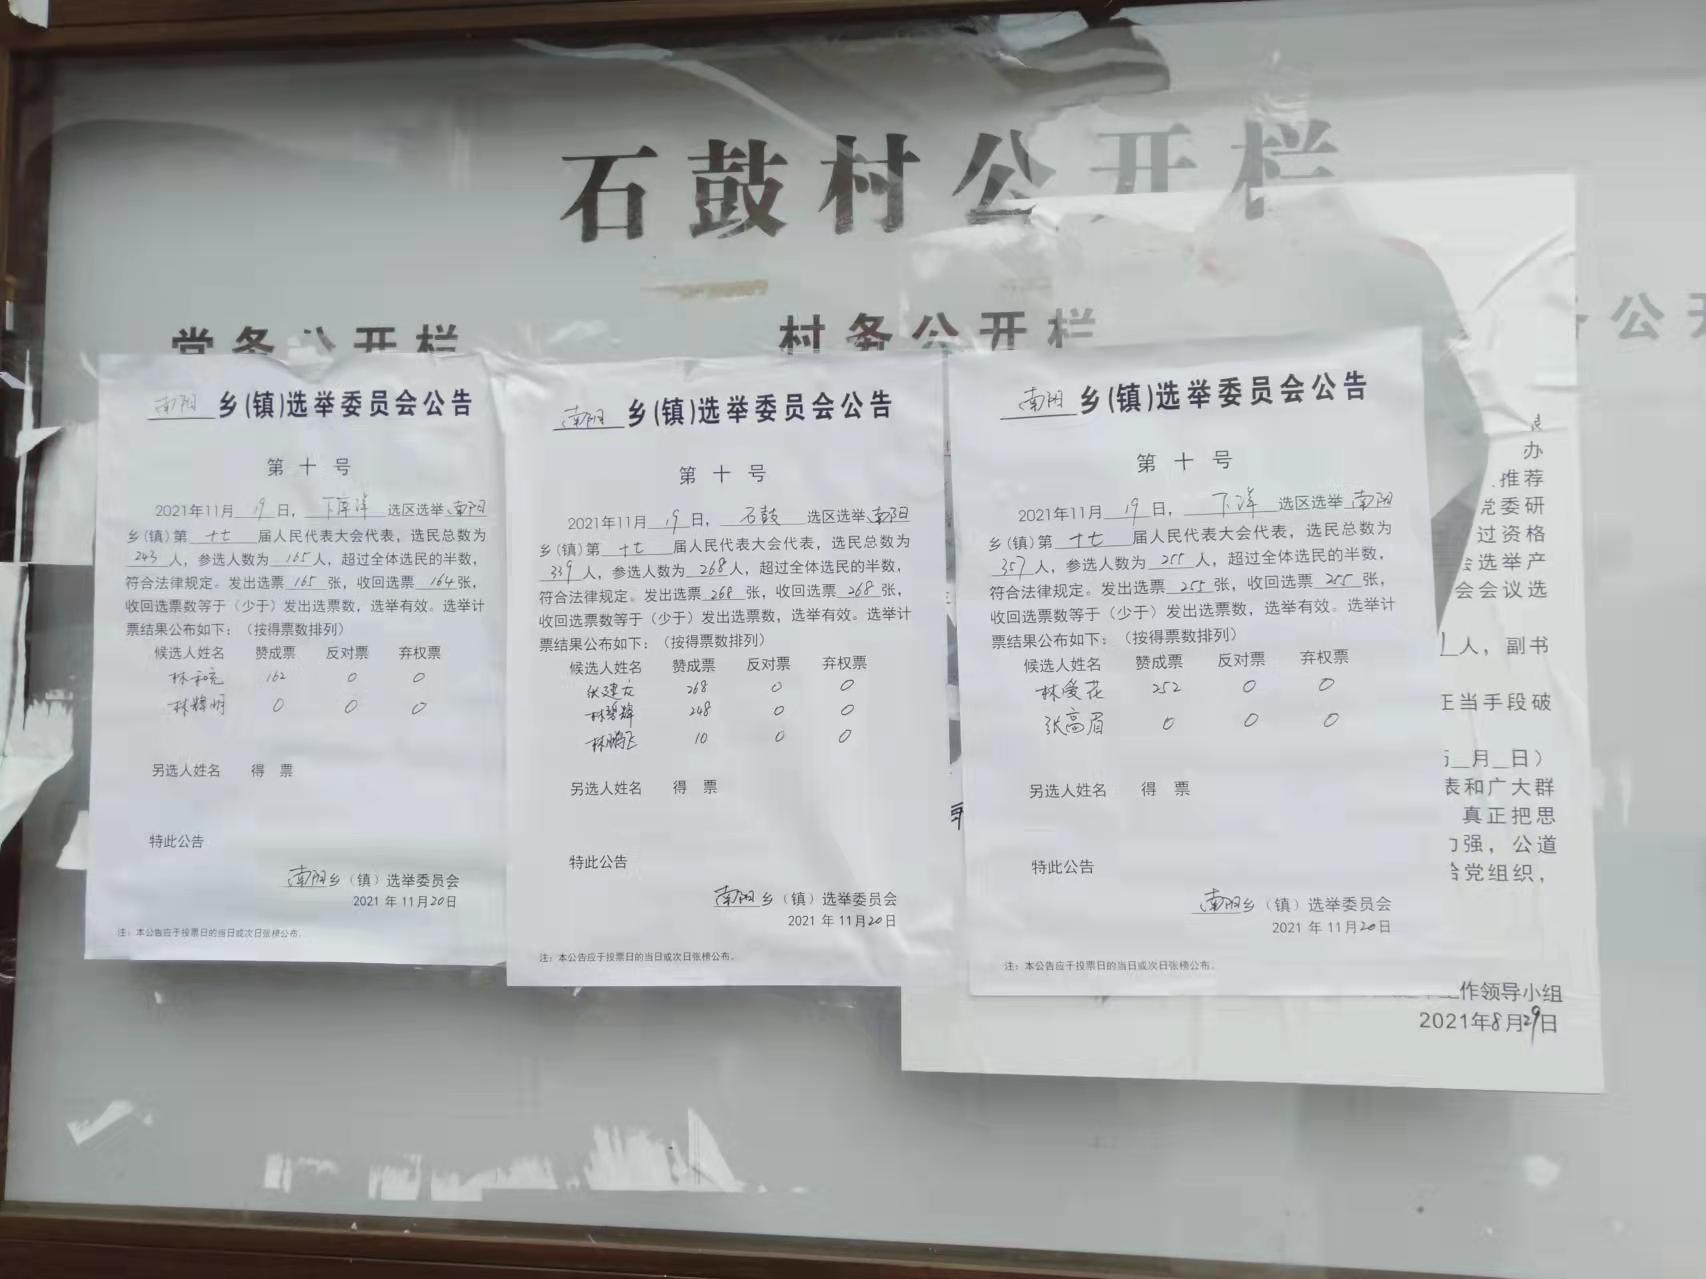 石鼓村公开栏
党务公开栏
村务公开栏
务公开
南阳乡(镇)选举委员会公告
第十号
2021年11月19日，下库洋选区选举南阳
乡(镇)第十七届人民代表大会代表，选民总数为
243人，参选人数为165人，超过全体选民的半数，
符合法律规定。发出选票165张，收回选票164张，
收回选票数等于（少于）发出选票数，选举有效。选举计
票结果公布如下：（按得票数排列）
候选人姓名 赞成票 反对票 弃权票
162 0 0
林辉明 0 0 0
另选人姓名 得 票
特此公告
南阳乡（镇）选举委员会
2021年11月20日
注：本公告应于投票日的当日或次日张榜公布。
南阳乡(镇)选举委员会公告
第十号
2021年11月19日，石鼓选区选举南阳
乡(镇)第十七届人民代表大会代表，选民总数为
339人，参选人数为268人，超过全体选民的半数，
符合法律规定。发出选票268张，收回选票268张，
收回选票数等于（少于）发出选票数，选举有效。选举计
票结果公布如下：（按得票数排列）
候选人姓名 赞成票 反对票 弃权票
张建友 268 0 0
林碧辉 248 0 0
林鹏飞 10 0 0
另选人姓名 得 票
特此公告
南阳乡（镇）选举委员会
2021年11月20日
注：本公告应于投票日的当日或次日张榜公布。
南阳乡(镇)选举委员会公告
第十号
2021年11月19日，下洋选区选举南阳
乡(镇)第十七届人民代表大会代表，选民总数为
357人，参选人数为255人，超过全体选民的半数，
符合法律规定。发出选票255张，收回选票255张，
收回选票数等于（少于）发出选票数，选举有效。选举计
票结果公布如下：（按得票数排列）
候选人姓名 赞成票 反对票 弃权票
林爱花 252 0 0
张高眉 0 0 0
另选人姓名 得 票
特此公告
南阳乡（镇）选举委员会
2021年11月20日
注：本公告应于投票日的当日或次日张榜公布。
办
推荐
党委研
过资格
会选举产
会会议选
人，副书
正当手段破
月 日）
表和广大群
真正把思
力强，公道
给党组织，
工作领导小组
2021年8月29日